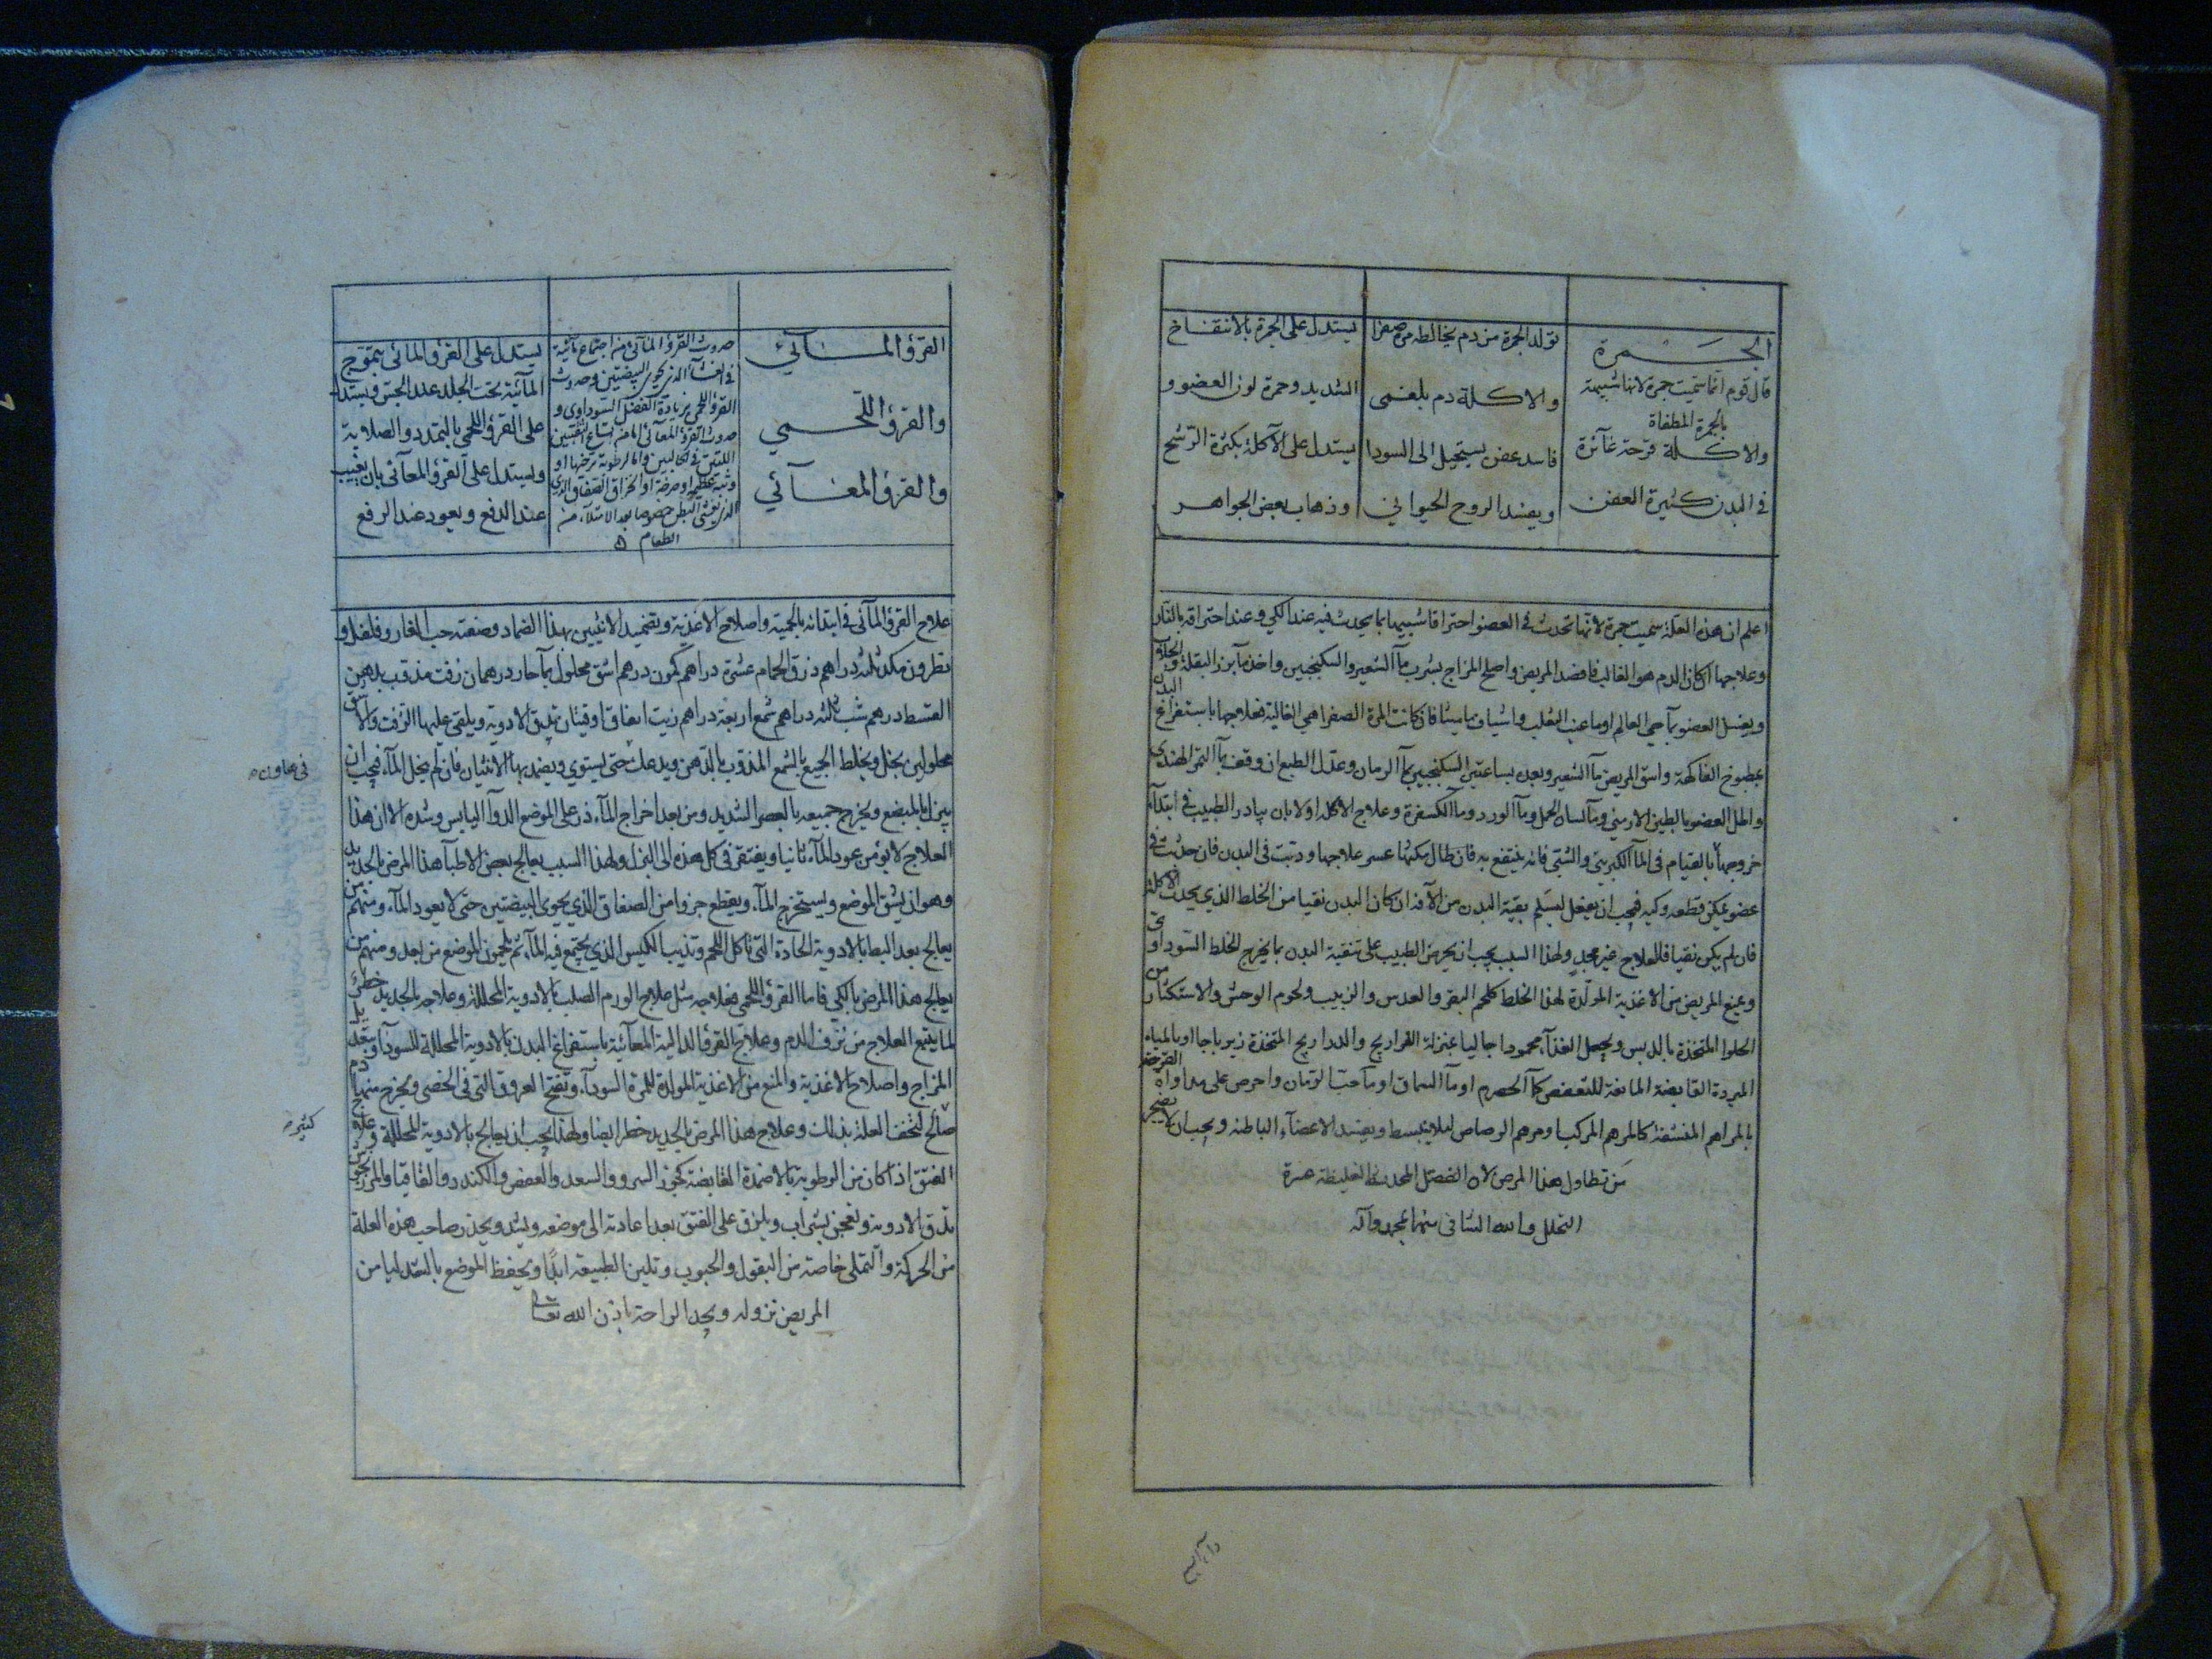 الجمرة
قال قوم انما سميت جمرة لانها شبيهة
بالجمرة المطفاة
والاكلة قرحة غائرة
في البدن كثيرة العفن
تولد الجمرة من دم يخالطه مرة صفرا
والاكلة دم بلغمى
فاسد عفن يستحيل الى السودا
ويفسد الروح الحيواني
يستدل على الجمرة بالانتفاخ
الشديد وحمرة لون العضو و
يستدل على الآكلة بكثرة الترشح
وذهاب بعض الجواهر
اعلم ان هذه العلة سميت جمرة لانها تحدث في العضو احتراقا شبيها بما يحدث فيه عند الكي وعند احتراقه بالنار
وعلاجها ان كان الدم هو الغالب فافصد المريض واصلح المزاج بشرب مآ الشعير والسكنجبين واخذ مآ بزر البقلة
ويغسل العضو بمآ حي العالم او ماء عنب الثعلب واشياف ماميثا فان كانت المرة الصفرا هي الغالبة فعلاجها باستفراغ البدن
بمطبوخ الفاكهة واسق المريض مآ الشعير وبعده بساعتين السكنجبين بمآ الرمان وعدل الطبع ان وقف بمآ التمر الهندى
واطل العضو بالطين الارمني ومآ لسان الحمل ومآ الورد ومآ الكسفرة وعلاج الاكلة اولا بان يبادر الطبيب في ابتدآء
خروجها بالقيام في المآ الكبريتي والشبي فانه ينتفع به فان طال مكثها عسر علاجها ودبت في البدن فان حدثت في
عضو يمكن قطعه وكيه فيجب ان يفعل ليسلم بقية البدن من الآفة ان كان البدن نقيا من الخلط الذي يحدث الاكلة
فان لم يكن نقيا فالعلاج غير مجدٍ ولهذا السبب يجب ان يحرض الطبيب على تنقية البدن بما يخرج الخلط السوداوى
ويمنع المريض من الاغذية المولدة لهذا الخلط كلحم البقر والعدس والزبيب ولحوم الوحش والاستكثار من
الحلوا المتخذة بالدبس ويجعل الغذآء محمودا جاليا بمنزلة الفراريج والدراريج المتخذة زيرباجا او بالمياه
المبردة القابضة المانعة للتعفن كمآ الحصرم او مآ السماق او مآ حب الرمان واحرص على مداواة القرحة
بالمراهم المنشفة كالمرهم المركب او مرهم الرصاص ليلا ينبسط ويفسد الاعضآء الباطنة ويجب ان لا يضجر
من تطاول هذا المرض لان الفضل المحدث الغليظة عسرة
التحلل والله الشافي منها بمحمد وآله
القرو المائي
والقرو اللحمي
والقرو المعآئي
حدوث القرو المآئى من اجتماع مائية
في الغشآ الذي يحوي البيضتين وحدوث
القرو اللحمي بزيادة الفضل السوداوى و
حدوث القرو المعآئى اما من اتساع الثقبتين
اللتين في الحالبين واما لرطوبة ترخيها او
وثبة عظيمة او صرخة او انخراق الصفاق الذي
يغشي البطن خصوصا بعد الامتلآء من
الطعام
يستدل على القرو المائي بتموج
المآئية تحت الجلد عند الجس ويستدل
على القرو اللحمي بالتمدد والصلابة
ويستدل على القرو المعآئى بان يغيب
عند الدفع ويعود عند الرفع
علاج القرو المآئى في ابتدائه بالحمية واصلاح الاغذية وتضميد الانثيين بهذا الضماد وصنعته حب الغار وفلفل و
نطرون مكد ثلثه دراهم ذرق الحمام عشرة دراهم كمون درهم اشق محلول بمآ حار درهمان زفت مذوب بدهن
القسط درهم شب ثلثه دراهم شمع اربعة دراهم زيت انفاق اوقيتان تدق الادوية ويلقى عليها الزفت والاشق
محلولين بخل ويخلط الجميع بالشمع المذوب بالدهن ويدعك حتى يستوي ويضمد بها الانثيان فان لم ينحل المآء فيجب ان
يبزل بالمبضع ويخرج جميعه بالعصر الشديد ومن بعد اخراج المآء ذر على الموضع الدوآ اليابس وشده الا ان هذا
العلاج لا يؤمن عود المآء ثانيا ويفتقر في كل مدة الى البزل ولهذا السبب يعالج بعض الاطبآ هذا المرض بالحديد
وهو ان يشق الموضع ويستخرج المآء ويقطع جزوا من الصفاق الذي يحوى البيضتين حتى لا يعود المآء ومنهم من
يعالج بعد البط بالادوية الحادة التي تاكل اللحم وتذيب الكيس الذي يجتمع فيه المآء ثم يلحمون الموضع من بعد ومنهم من
يعالج هذا المرض بالكي فاما القرو اللحمي فعلاجه مثل علاج الورم الصلب بالادوية المحللة وعلاجه بالحديد خطر
لما يتبع العلاج من نزف الدم وعلاج القرو الدالية المعآئية باستفراغ البدن بالادوية المحللة للسودآ وتعديل
المزاج واصلاح الاغذية والمنع من الاغذية المولدة للمرة السودآء وتفتح العروق التي في الخصى ويخرج منها دم
صالح لتخف العلة بذلك وعلاج هذا المرض بالحديد خطر ايضا ولهذا يجب ان يعالج بالادوية المحللة وعلاج
الفتق اذا كان من الرطوبة بالاضمدة القابضة كجوز السرو والسعد والعفص والكندر والقاقيا والمرزنجوش
تدق الادوية وتعجن بشراب ويلزق على الفتق بعد اعادته الى موضعه ويشد ويحذر صاحب هذه العلة
من الحركة والتملى خاصة من البقول والحبوب وتلين الطبيعة ابدًا ويحفظ الموضع بالشد ليامن
المريض نزوله ويجد الراحة باذن الله تعالى
كثير